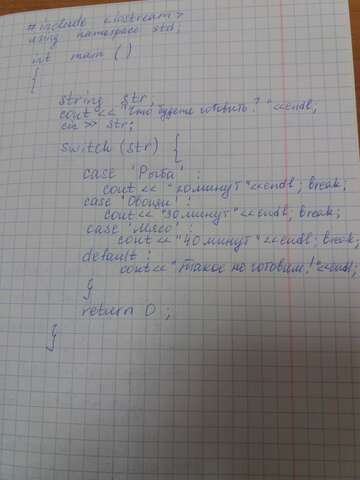 #include <iostream>
using namespace std;
int main ()
{
string str;
cout << "Что будете готовить? "<<endl;
cin >> str;
switch (str) {
case 'Рыба' :
cout << "20 минут"<<endl; break;
case 'Овощи' :
cout << "30 минут"<<endl; break;
case 'Мясо' :
cout << "40 минут"<<endl; break;
default :
cout << "Такое не готовим!"<<endl;
}
return 0 ;
}